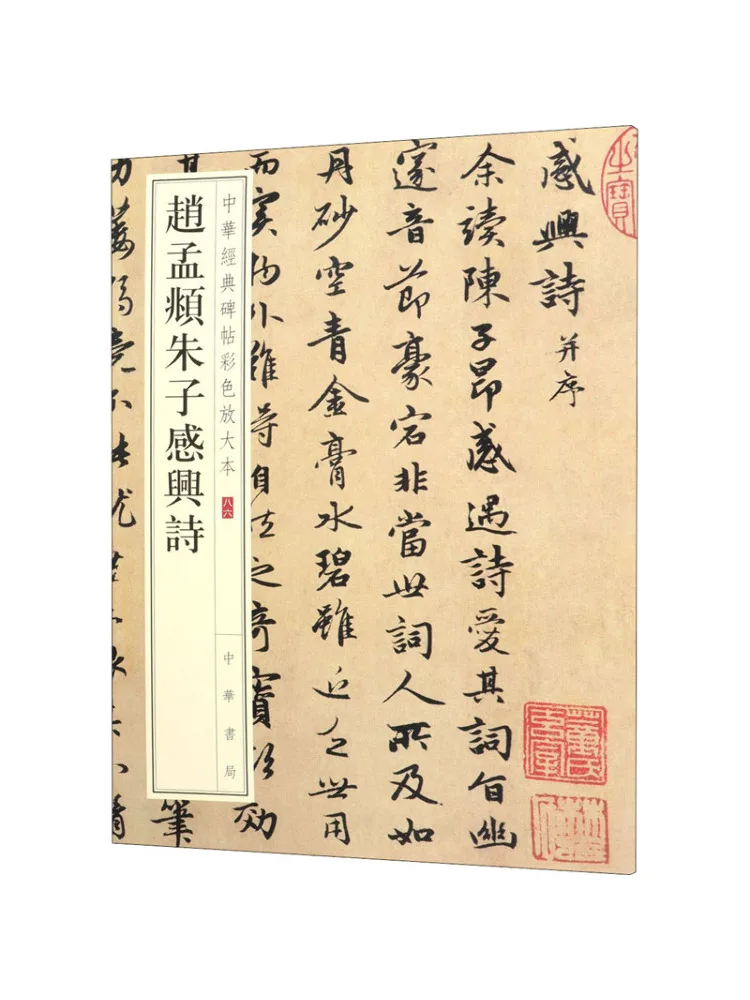 之寶
感興詩并序
余讀陳子昂感遇詩愛其詞旨幽
邃音節豪宕非當世詞人所及如
丹砂空青金膏水碧雖近乏世用
而實物外難得自然之奇寶欲效
中華經典碑帖彩色放大本 八六
中華書局
趙孟頫朱子感興詩
其
筆